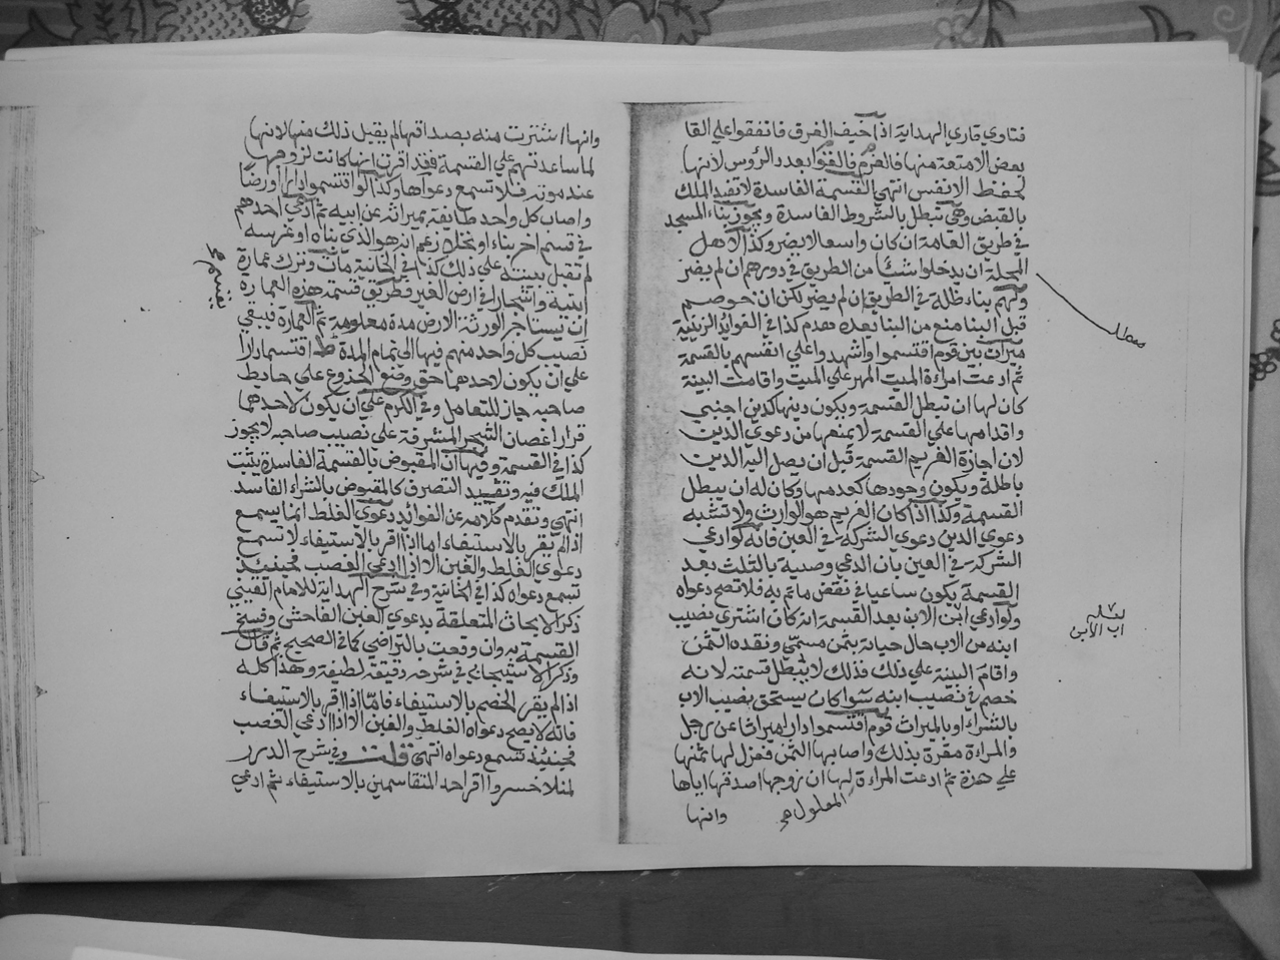 فتاوي قاري الهداية اذا خيف الغرق فاتفقوا علي القا
بعض الامتعة منها فالغرم فالقوا بعدد الرؤس لانها
لحفظ الانفس انتهي القسمة الفاسدة لاتفيد الملك
بالقبض وهي تبطل بالشروط الفاسدة ويجوز بناء المسجد
في طريق العامة ان كان واسعا لا يضر وكذا لاهل
المحلة ان يدخلوا شئا من الطريق في دورهم ان لم يضر
ولهم بناء ظلة في الطريق ان لم يضر لكن ان خوصم
قبل البنا منع من البنا بعده فهدم كذا في الفوائد الزينية
ميراث بين قوم اقتسموا واشهدوا علي انفسهم بالقسمة
ثم ادعت امراة الميت المهر علي الميت واقامت البينة
كان لها ان تبطل القسمة ويكون دينها كدين اجنبي
واقدامها علي القسمة لا يمنعها من دعوي الدين
لان اجازة الغريم القسمة قبل ان يصل اليه الدين
باطلة ويكون وجودها كعدمها وكان له ان يبطل
القسمة وكذا اذا كان الغريم هو الوارث ولا تشبه
دعوي الدين دعوي الشركة في العين فانه لو ادعي
الشركة في العين بان ادعي وصية بالثلث بعد
القسمة يكون ساعيا في نقض ما تم به فلا تصح دعواه
ولو ادعي ابن الابن بعد القسمة انه كان اشتري نصيب
ابنه من الاب حال حياته بثمن مسمي ونقده الثمن
واقام البينة علي ذلك فذلك لا يبطل قسمته لانه
خصم في نصيب ابنه سوا كان يستحق نصيب الاب
بالشراء او بالميراث قوم اقتسموا دارا ميراثا عن رجل
والمراءة مقرة بذلك واصابها الثمن فعزل لها ثمنها
علي حدة ثم ادعت المراءة لها ان زوجها اصدقها اياها
وانها
مطلب
اب الأبن
وانها اشترت منه بصداقها لم يقبل ذلك منها لانها
لما ساعدتهم علي القسمة فقد اقرت انها كانت لزوجها
عند موته فلا تسمع دعواها وكذا لو اقتسموا دارا او رضا
واصاب كل واحد طايفة بميراثه عن ابيه ثم ادعي احدهم
في قسم اخر بناء او نخلا زعم انه هو الذي بناه او غرسه
لم تقبل بينته علي ذلك كذا في الخانية مات وترك عمارة
ابنية واشجارا في ارض الغير فطريق قسمة هذه العمارة
ان يستاجر الورثة الارض مدة معلومة ثم العمارة فيبقي
نصيب كل واحد منهم فيها الي تمام المدة ط اقتسما دارا
علي ان يكون لاحدهما حق وضع الجذوع علي حايط
صاحبه جاز للتعامل وفي الكرم علي ان يكون لاحدهما
قرار اغصان الشجر المشرفة علي نصيب صاحبه لا يجوز
كذا في القسمة وفيها ان المقبوض بالقسمة الفاسدة يثبت
الملك فيه وتفييد التصرف كالمقبوض بالشراء الفاسد
انتهي وتقدم كلامه عن الفوائد دعوي الغلط انما يسمع
اذا لم يقر بالاستيفاء اما اذا اقر بالاستيفاء لا تسمع
دعاوي الغلط والغبن الا اذا ادعي الغصب فحينئذ
تسمع دعواه كذا في الخانية وفي شرح الهداية للامام العيني
ذكر الابحاث المتعلقة بدعوي الغبن الفاحش وفسخ
القسمة به وان وقعت بالتراضي كما في الصحيح ثم قال
وذكر الاسبيجابي في شرحه دقيقة لطيفة وهذا كله
اذا لم يقر الخصم بالاستيفاء فامّا اذا اقر بالاستيفاء
فانه لا يصح دعواه الغلط والغبن الا اذا ادعي الغصب
فحينئذ تسمع دعواه انتهي قلت وفي شرح الدرر
لمنلا خسروا اقر احد المتقاسمين بالاستيفاء ثم ادعي